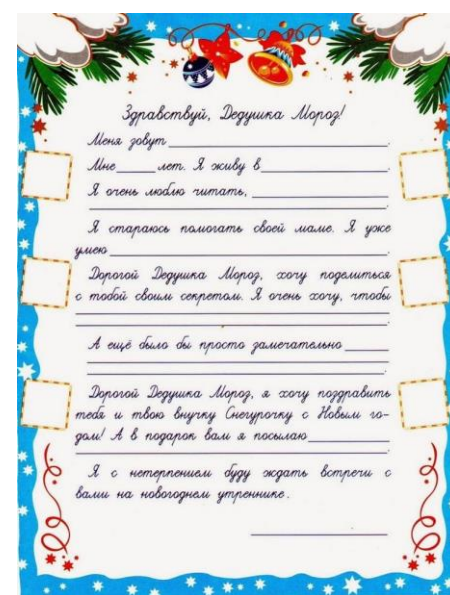 Здравствуй, Дедушка Мороз!
Меня зовут
Мне лет. Я живу в
Я очень люблю читать,
Я стараюсь помогать своей маме. Я уже
умею
Дорогой Дедушка Мороз, хочу поделиться
с тобой своим секретом. Я очень хочу, чтобы
А ещё было бы просто замечательно
Дорогой Дедушка Мороз, я хочу поздравить
тебя и твою внучку Снегурочку с Новым го-
дом! А в подарок вам я посылаю
Я с нетерпением буду ждать встречи с
вами на новогоднем утреннике.